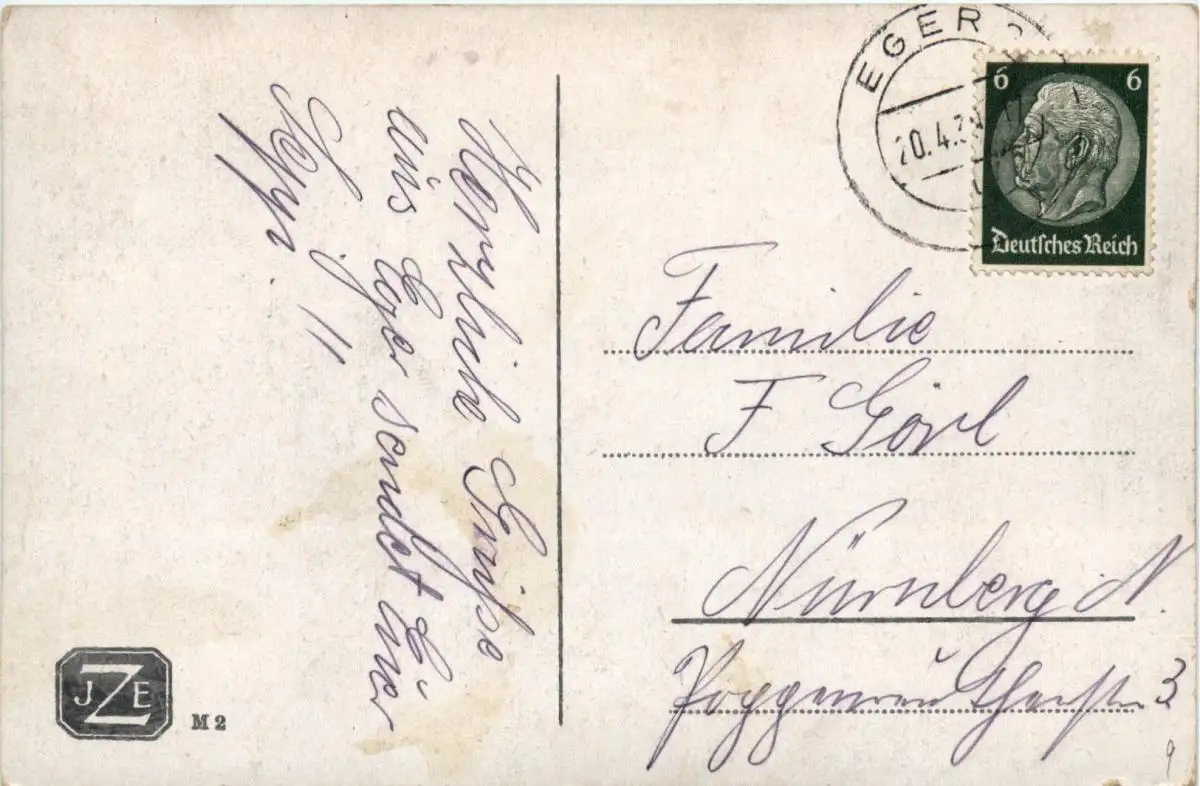 Herzliche Grüße
aus Eger sendet Euch
EGER
20.4.3
6 6
Deutsches Reich
Familie
F Görl
Nürnberg N.
3
JZE
M 2
9